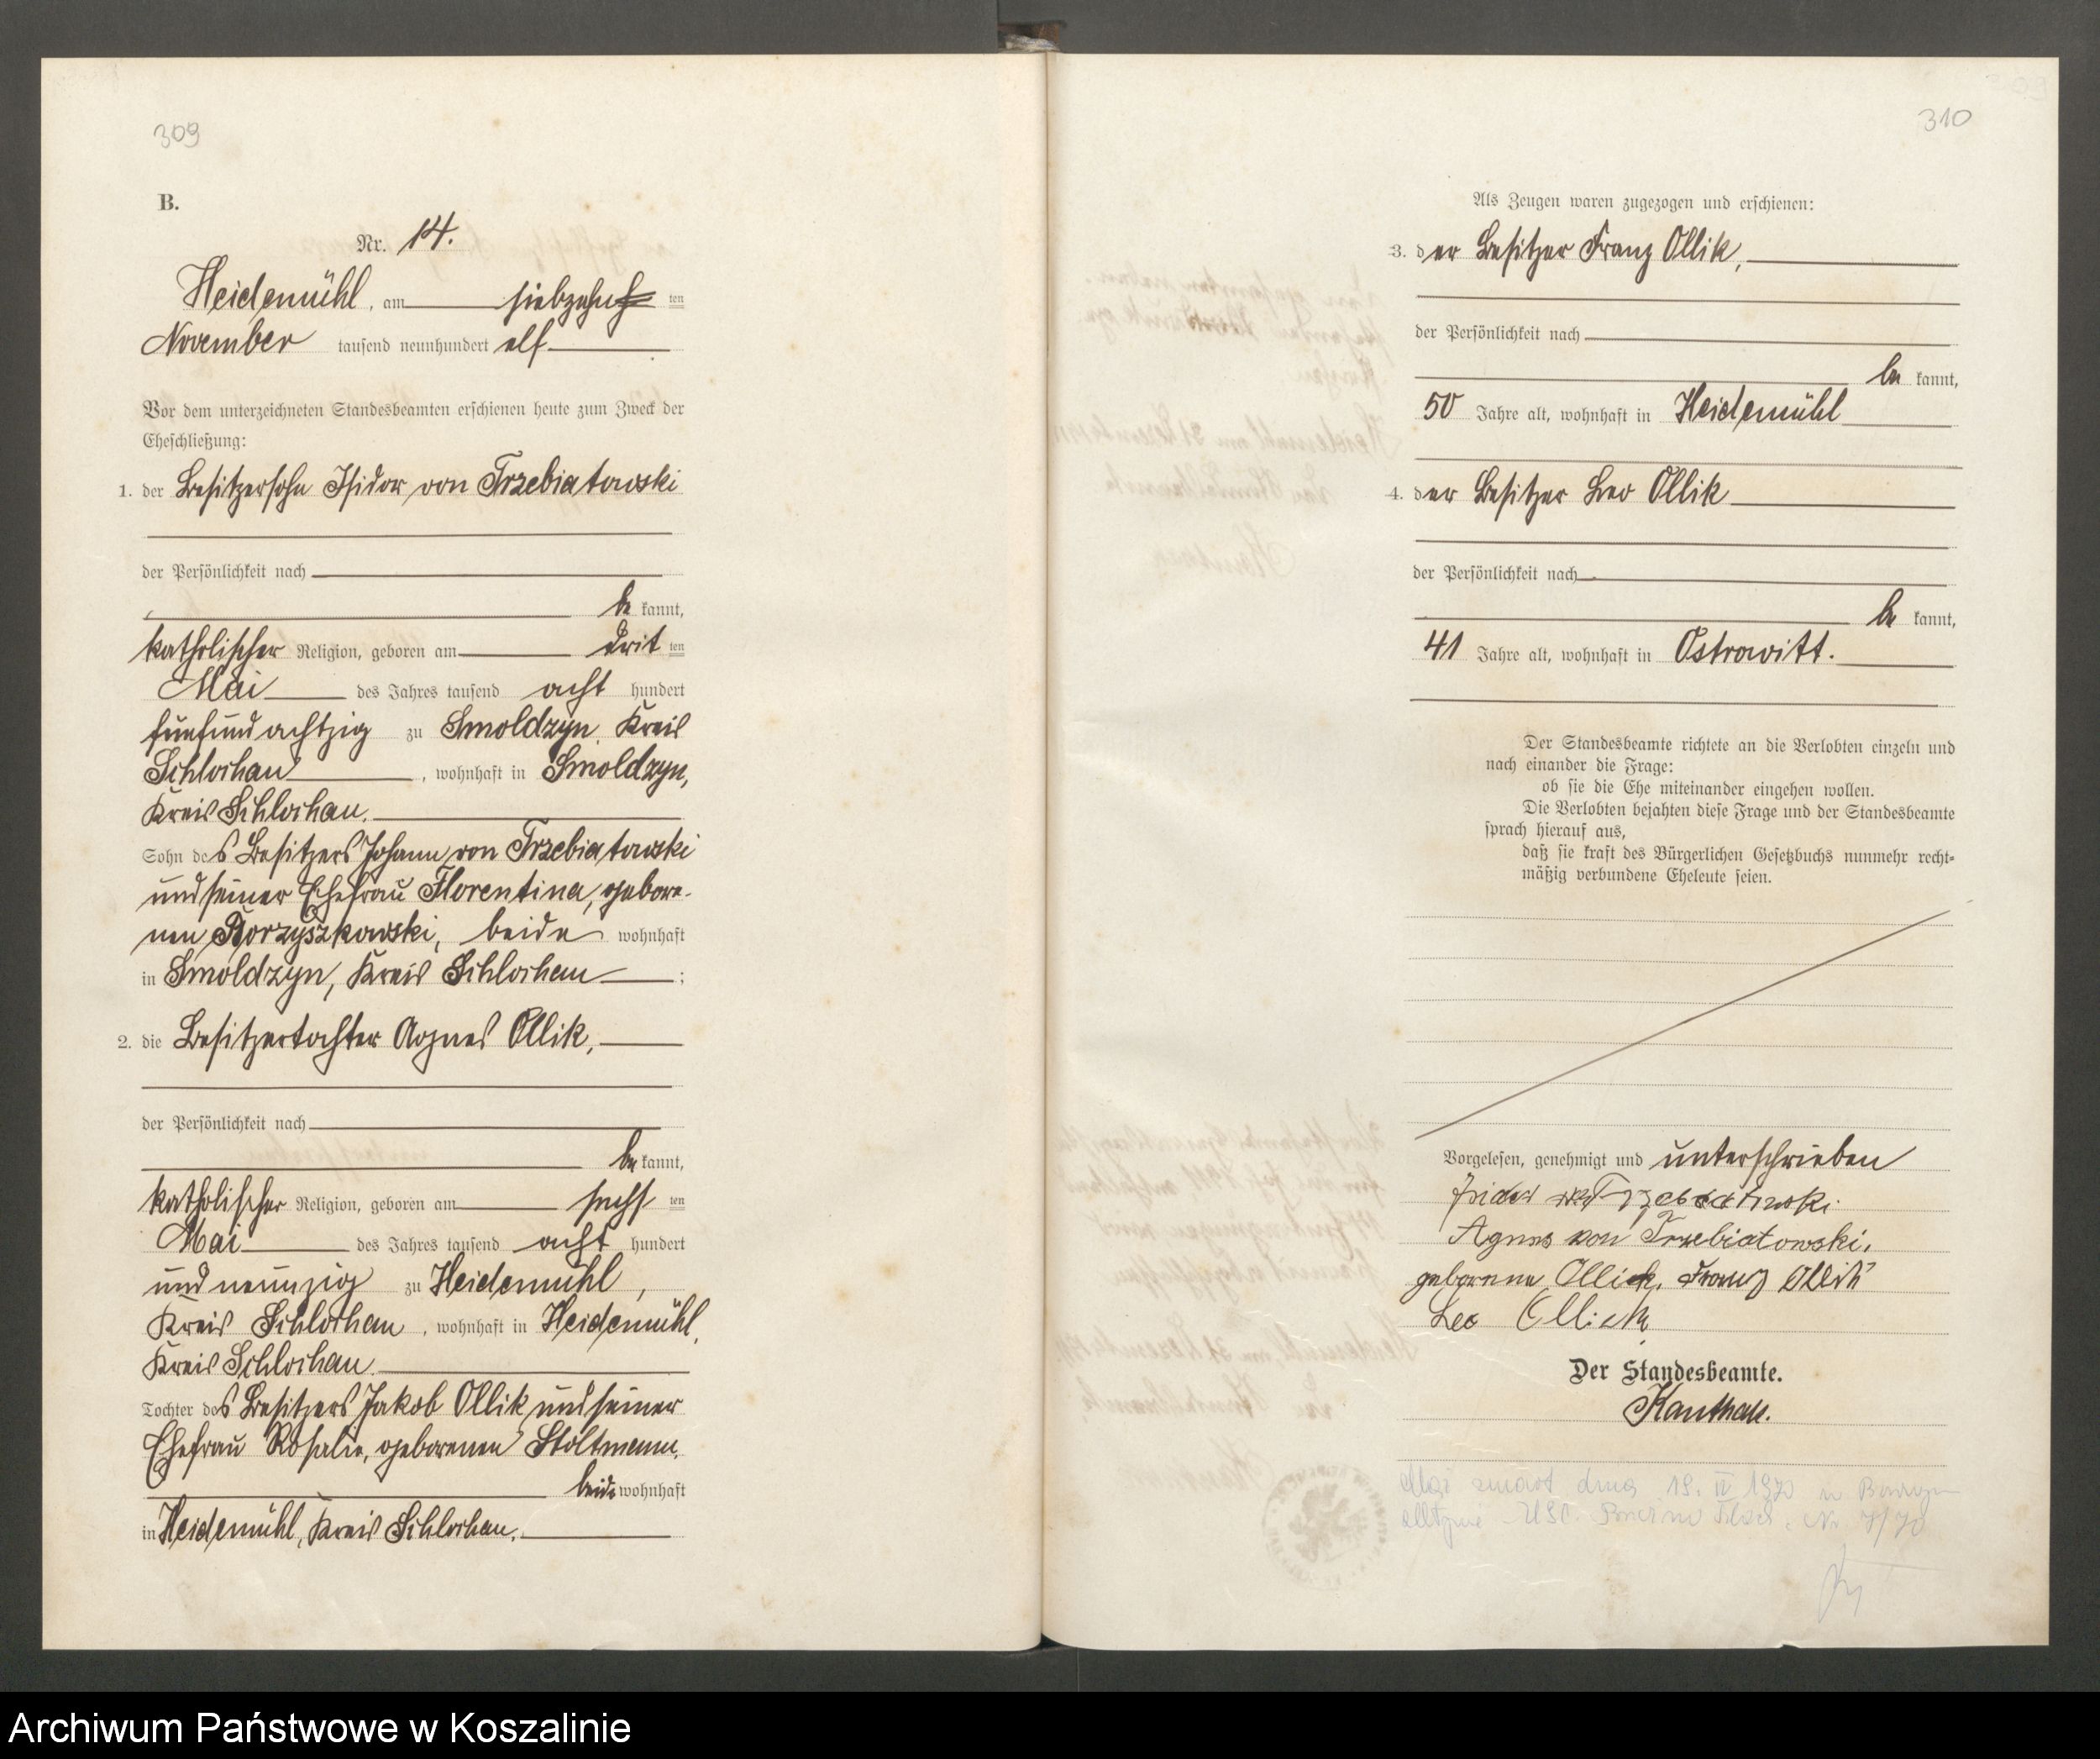 309
B.
Nr. 14.
Heidemühl, am siebzehn ten
November tausend neunhundert elf
Vor dem unterzeichneten Standesbeamten erschienen heute zum Zweck der
Eheschließung:
1. der Besitzersohn Isidor von Trzebiatowski
der Persönlichkeit nach
be kannt,
katholischer Religion, geboren am drit ten
Mai des Jahres tausend acht hundert
fünfundachtzig zu Smoldzyn, Kreis
Schlochau, wohnhaft in Smoldzyn,
Kreis Schlochau.
Sohn des Besitzers Johann von Trzebiatowski
und seiner Ehefrau Florentina, gebore-
nen Borzyszkowski, beide wohnhaft
in Smoldzyn, Kreis Schlochau ;
2. die Besitzertochter Agnes Ollik,
der Persönlichkeit nach
be kannt,
katholischer Religion, geboren am sechs ten
Mai des Jahres tausend acht hundert
und neunzig zu Heidemühl,
Kreis Schlochau, wohnhaft in Heidemühl,
Kreis Schlochau.
Tochter des Besitzers Jakob Ollik und seiner
Ehefrau Rosalie, geborenen Stoltmann,
beide wohnhaft
in Heidemühl, Kreis Schlochau.
310
Als Zeugen waren zugezogen und erschienen:
3. der Besitzer Franz Ollik,
der Persönlichkeit nach
be kannt,
50 Jahre alt, wohnhaft in Heidemühl
4. der Besitzer Leo Ollik
der Persönlichkeit nach
be kannt,
41 Jahre alt, wohnhaft in Ostrowitt.
Der Standesbeamte richtete an die Verlobten einzeln und
nach einander die Frage:
ob sie die Ehe miteinander eingehen wollen.
Die Verlobten bejahten diese Frage und der Standesbeamte
sprach hierauf aus,
daß sie kraft des Bürgerlichen Gesetzbuchs nunmehr recht-
mäßig verbundene Eheleute seien.
Vorgelesen, genehmigt und unterschrieben
Isidor von Trzebiatowski
Agnes von Trzebiatowski,
geborene Ollick, Franz Ollik
Leo Ollick
Der Standesbeamte.
Kanthak.
Mąż zmarł dnia 19. IV 1970 w
USC. Nr 7/70
Archiwum Państwowe w Koszalinie